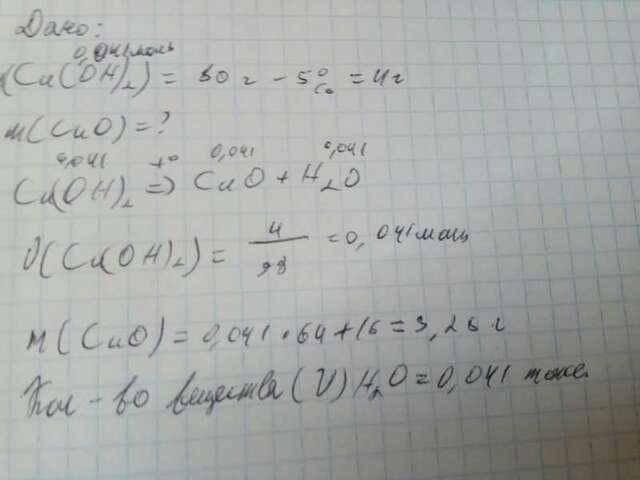 Дано:
0,041 моль
(Cu(OH)₂) = 80 г - 5% = 4 г
m(CuO) = ?
0,041 t° 0,041 0,041
Cu(OH)₂ => CuO + H₂O
ν(Cu(OH)₂) = 4/98 = 0,041 моль
m(CuO) = 0,041 · 64 + 16 = 3,28 г
Кол-во вещества (ν) H₂O = 0,041 тоже.